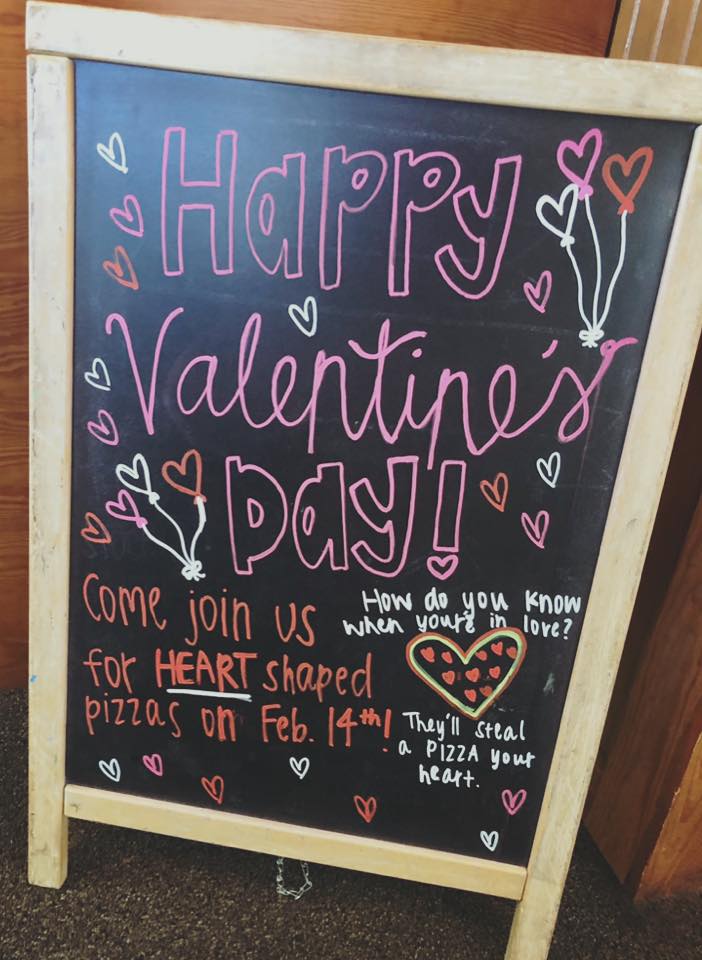 Happy
Valentine's
Day!
Come join us
for HEART shaped
pizzas on Feb. 14th!
How do you know
when you're in love?
They'll steal
a PIZZA your
heart.